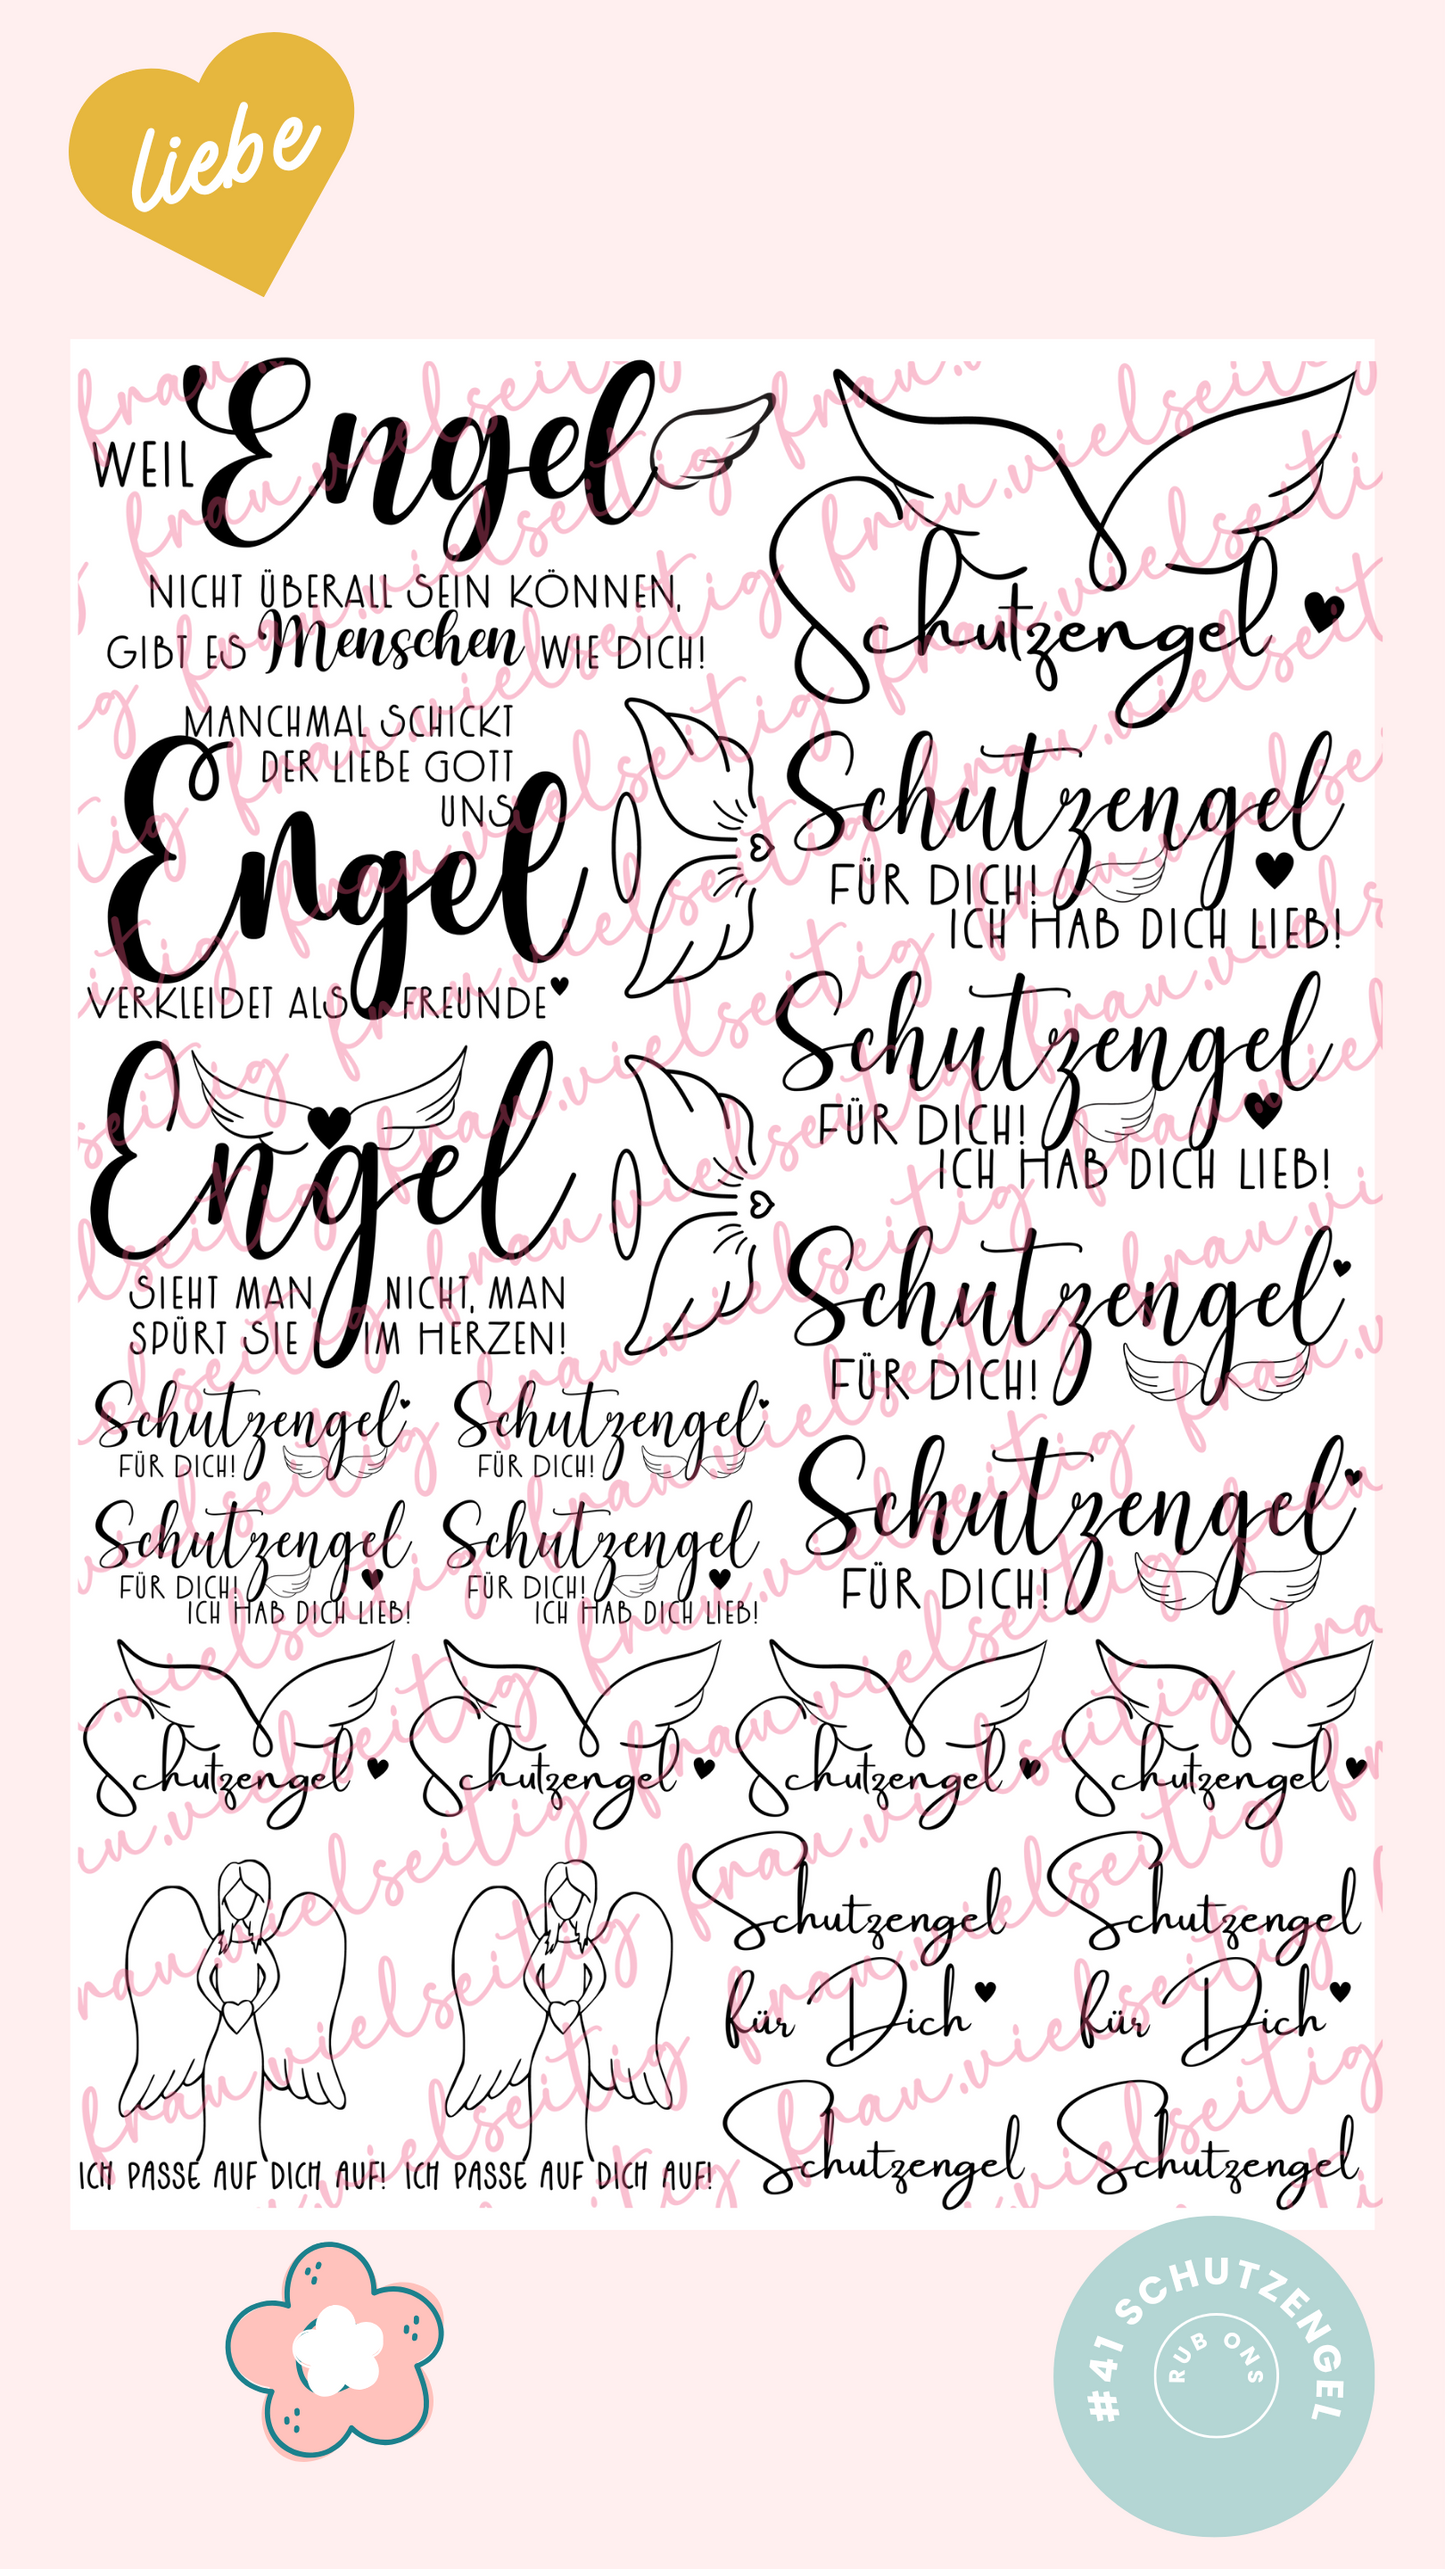 liebe
WEIL Engel
NICHT ÜBERALL SEIN KÖNNEN,
GIBT ES Menschen WIE DICH!
Schutzengel
MANCHMAL SCHICKT
DER LIEBE GOTT
UNS
Engel
VERKLEIDET ALS FREUNDE
Schutzengel
FÜR DICH!
ICH HAB DICH LIEB!
Schutzengel
FÜR DICH!
ICH HAB DICH LIEB!
Engel
SIEHT MAN NICHT, MAN
SPÜRT SIE IM HERZEN!
Schutzengel
FÜR DICH!
Schutzengel
FÜR DICH!
Schutzengel
FÜR DICH!
Schutzengel
FÜR DICH!
Schutzengel
FÜR DICH!
ICH HAB DICH LIEB!
Schutzengel
FÜR DICH!
ICH HAB DICH LIEB!
Schutzengel
Schutzengel
Schutzengel
Schutzengel
ICH PASSE AUF DICH AUF!
ICH PASSE AUF DICH AUF!
Schutzengel
für Dich
Schutzengel
für Dich
Schutzengel
Schutzengel
frau.vielseitig
#41 SCHUTZENGEL
RUB ONS